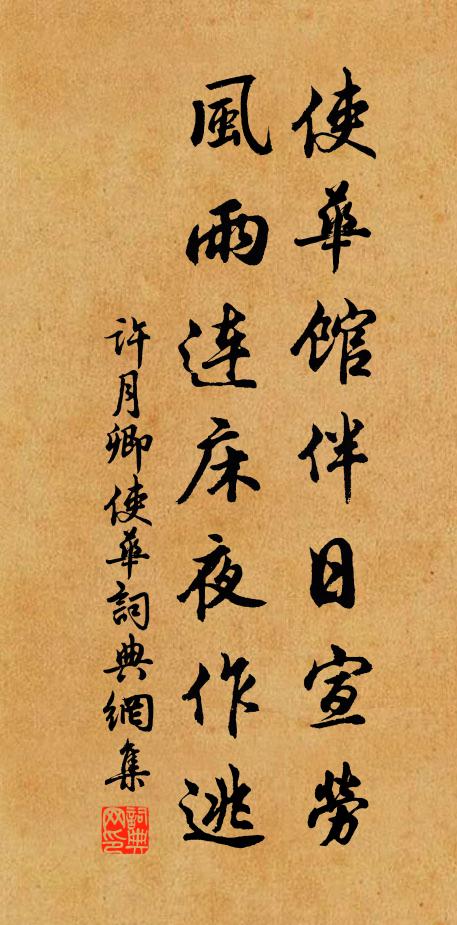 使華館伴日宣勞
風雨连床夜作逃
许月卿使華詞典網集
詞典网印